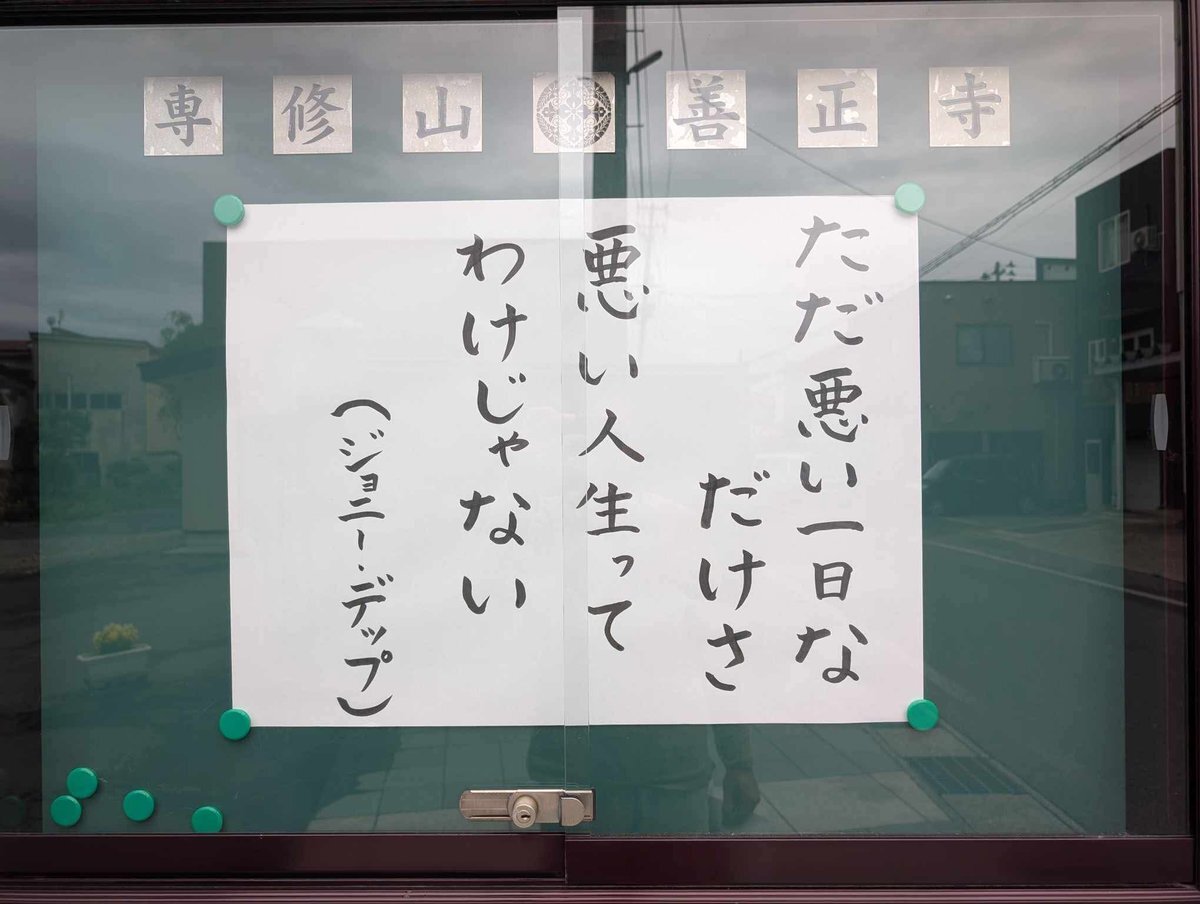 専修山 善正寺
ただ悪い一日な
だけさ
悪い人生って
わけじゃない
(ジョニー・デップ)